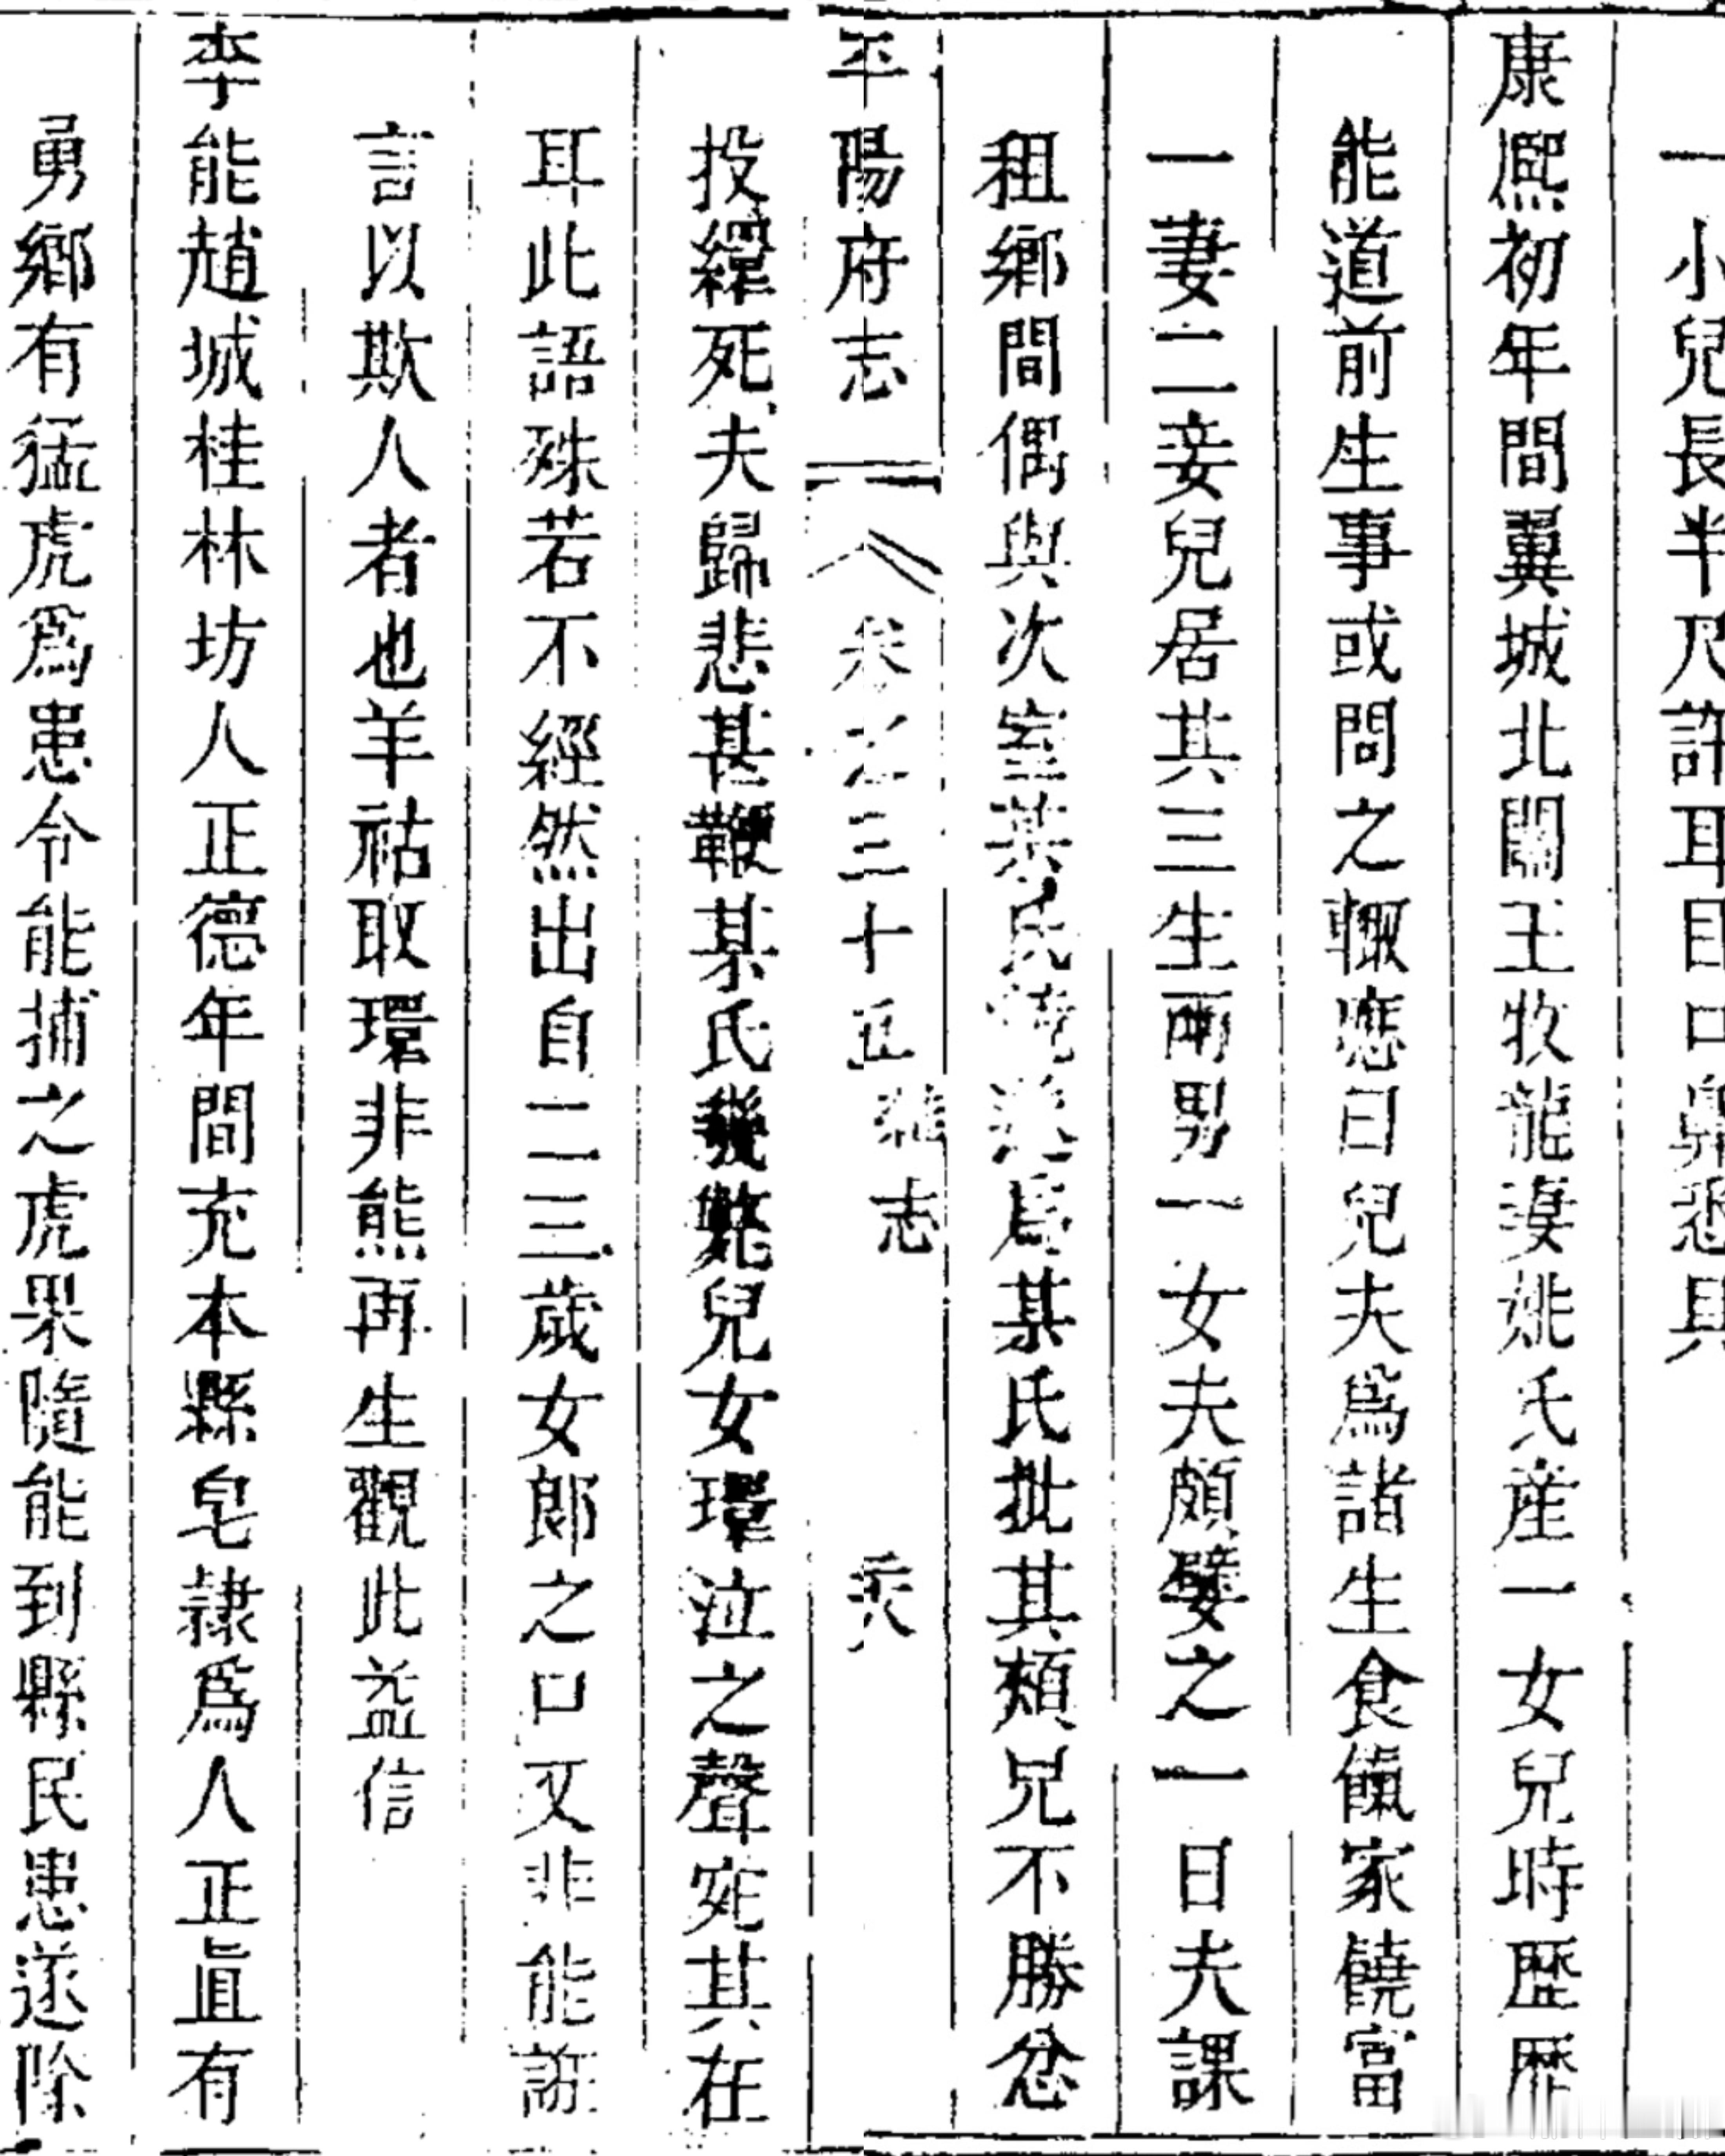 一小兒長半尺許耳目口鼻悉具
康熙初年間翼城北關王牧龍妻姚氏産一女兒時歷歷
能道前生事或問之輙應曰兒夫爲諸生食餼家饒富
一妻二妾兒居其三生兩男一女夫頗嬖之一日夫課
租鄉間偶與次室某氏爲某氏批其頰兄不勝忿
平陽府志 卷之三十五 雜志 兲
投繯死夫歸悲甚鞭某氏幾斃兒女環泣之聲宛其在
耳此語殊若不經然出自二三歲女郎之口又非能誑
言以欺人者也羊祜取環非熊再生觀此益信
李能趙城桂林坊人正德年間充本縣皂隷爲人正直有
勇鄉有猛虎爲患令能捕之虎果隨能到縣民患遂除